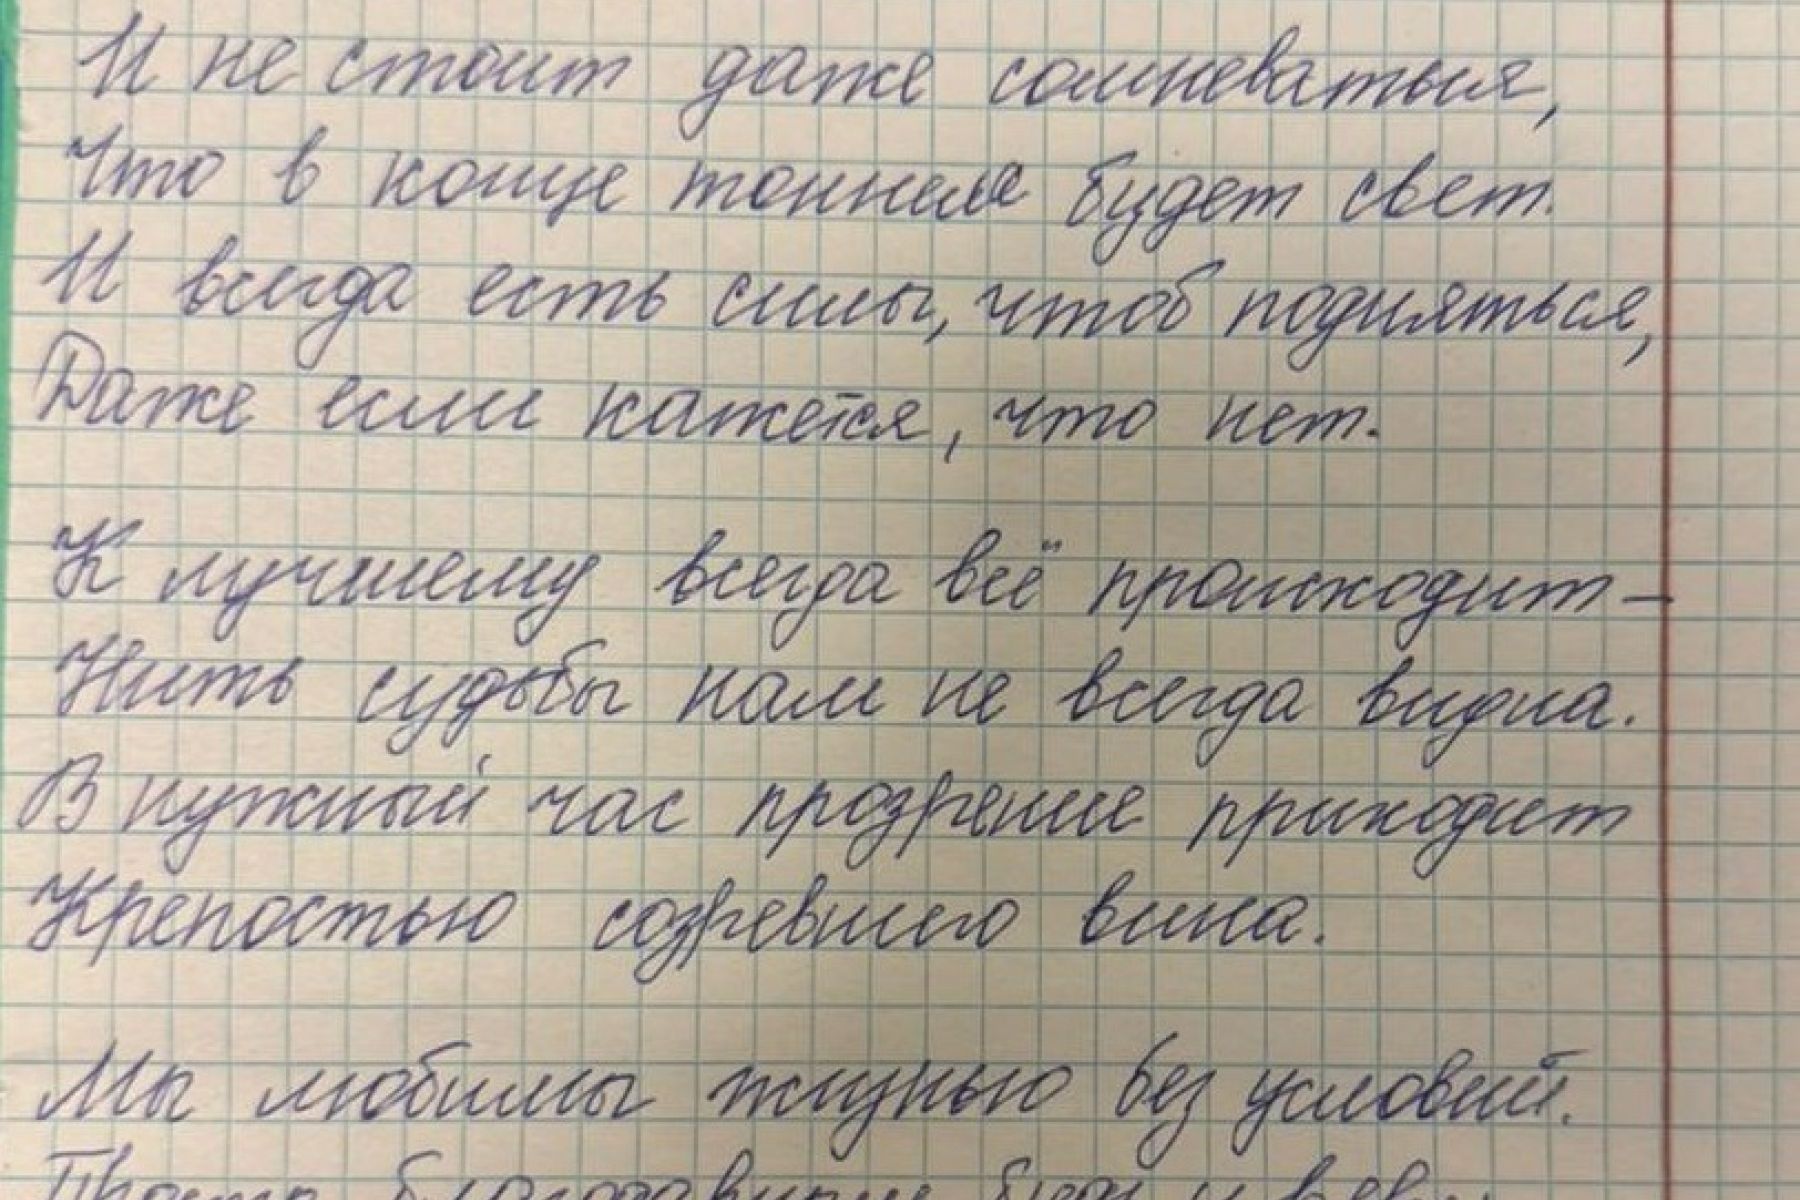 И не стоит даже сомневаться,
Что в конце тоннеля будет свет.
И всегда есть силы, чтоб подняться,
Даже если кажется, что нет.
К лучшему всегда всё происходит –
Нить судьбы нам не всегда видна.
В нужный час прозрение приходит
Крепостью созревшего вина.
Мы любимы жизнью без условий.
Просто